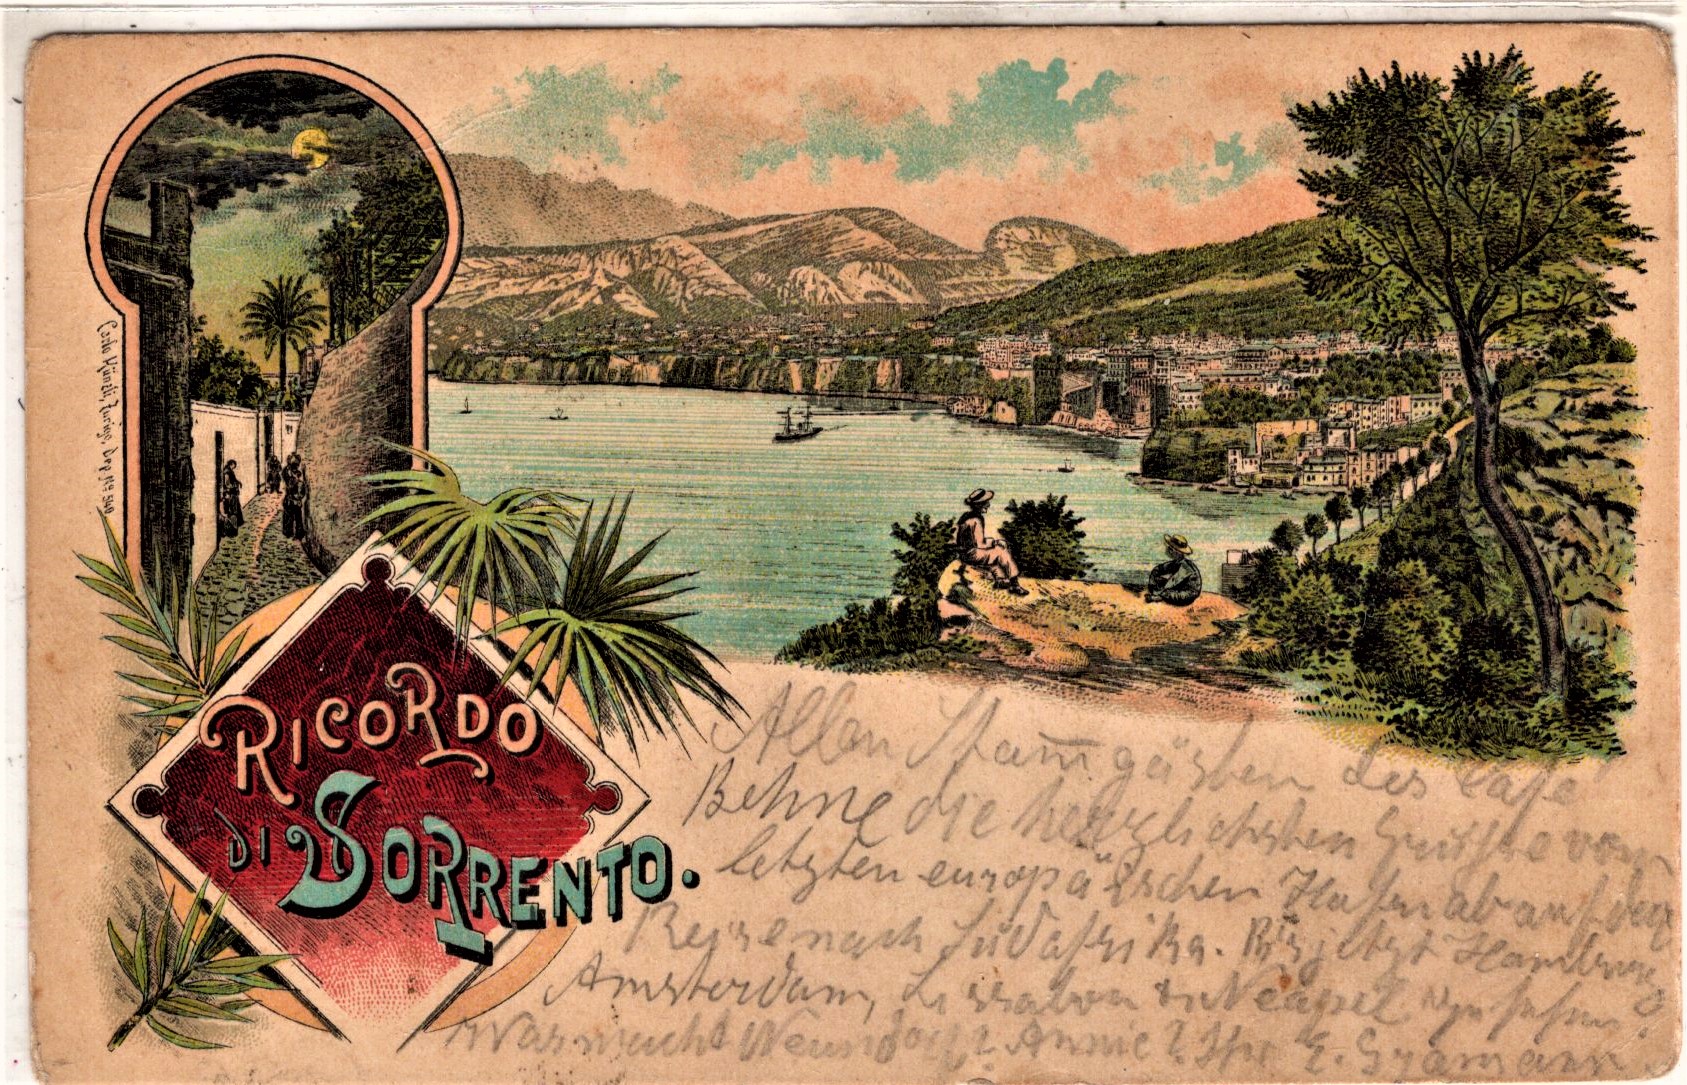 Carlo Künzli, Zurigo, Dep. No. 549
RICORDO
DI SORRENTO.
Allen Stam̄gästen des Cafe
Behne die herzlichsten Grüsse vom
letzten europäischen Hafen ab auf der
Reise nach Südafrika. Bis jetzt Hamburg
Amsterdam, Lissabon Neapel gesehen
Was macht Neundorf? Annie? Ihr E.